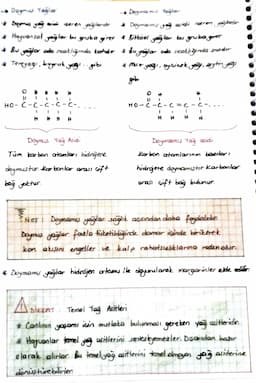 * Doymuş Yağlar
* Doymuş yağ asidi içeren yağlardır
* Hayvansal yağlar bu gruba girer
* Bu yağlar oda sıcaklığında katıdır
* Tereyağı, kuyruk yağı gibi
* Doymamış Yağlar
* Doymamış yağ asidi içeren yağlardır
* Bitkisel yağlar bu gruba girer
* Bu yağlar oda sıcaklığında sıvıdır
* Mısır yağı, ayçiçek yağı, zeytin yağı gibi
HO-C-C-C-C-C-....
HO-C-C-C=C-C-....
Doymuş Yağ Asidi
Doymamış Yağ asidi
Tüm karbon atomları hidrojene
doymuştur. Karbonlar arası çift
bağ yoktur.
Karbon atomlarının bazıları
hidrojene doymamıştır. Karbonlar
arası çift bağ bulunur.
Not: Doymamış yağlar sağlık açısından daha faydalıdır.
Doymuş yağlar fazla tüketildiğinde damar içinde birikerek
kan akışını engeller ve kalp rahatsızlıklarına neden olur.
* Doymamış yağlar hidrojen ortamı ile doyurularak margarinler elde edilir.
Dikkat: Temel Yağ Asitleri
* Canlının yaşamı için mutlaka bulunması gereken yağ asitleridir.
* Hayvanlar temel yağ asitlerini sentezleyemezler. Dışarıdan hazır
olarak alırlar. Bu temel yağ asitlerini temel olmayan yağ asitlerine
dönüştürebilirler.